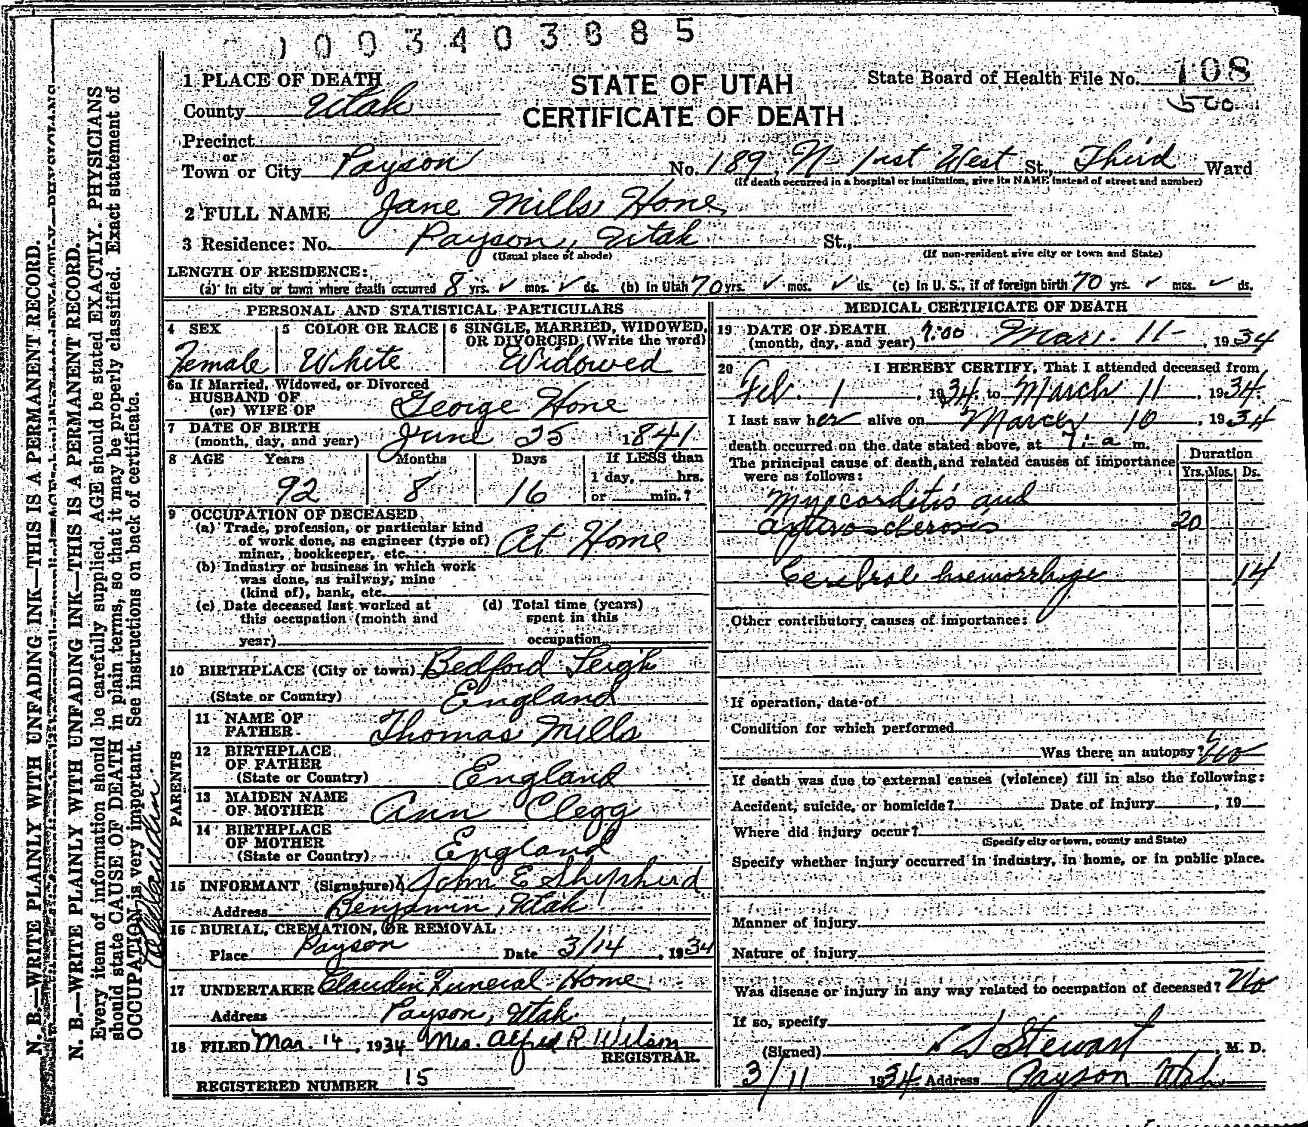 1003403885
1 PLACE OF DEATH
STATE OF UTAH
CERTIFICATE OF DEATH
State Board of Health File No. 108
500
County Utah
Precinct
or
Town or City Payson No. 189 N- 1rst West St., Third Ward
(If death occurred in a hospital or institution, give its NAME instead of street and number)
2 FULL NAME Jane Mills Hone
3 Residence: No. Payson, Utah St.,
(Usual place of abode) (If non-resident give city or town and State)
LENGTH OF RESIDENCE:
(a) In city or town where death occurred 8 yrs. ✓ mos. ✓ ds. (b) In Utah 70 yrs. ✓ mos. ✓ ds. (c) In U. S., if of foreign birth 70 yrs. ✓ mos. ✓ ds.
PERSONAL AND STATISTICAL PARTICULARS
4 SEX Female
5 COLOR OR RACE White
6 SINGLE, MARRIED, WIDOWED, OR DIVORCED (Write the word) Widowed
6a If Married, Widowed, or Divorced
HUSBAND OF
(or) WIFE OF George Hone
7 DATE OF BIRTH
(month, day, and year) June 25 1841
8 AGE Years Months Days If LESS than
1 day, hrs.
92 8 16 or min.?
9 OCCUPATION OF DECEASED
(a) Trade, profession, or particular kind
of work done, as engineer (type of)
miner, bookkeeper, etc. At Home
(b) Industry or business in which work
was done, as railway, mine
(kind of), bank, etc.
(c) Date deceased last worked at
this occupation (month and
year)
(d) Total time (years)
spent in this
occupation
10 BIRTHPLACE (City or town) Bedford Leigh
(State or Country) England
PARENTS
11 NAME OF
FATHER Thomas Mills
12 BIRTHPLACE
OF FATHER
(State or Country) England
13 MAIDEN NAME
OF MOTHER Ann Clegg
14 BIRTHPLACE
OF MOTHER
(State or Country) England
15 INFORMANT (Signature) John E Shepherd
Address Benjamin, Utah
16 BURIAL, CREMATION, OR REMOVAL
Place Payson Date 3/14, 1934
17 UNDERTAKER Claudin Funeral Home
Address Payson, Utah
18 FILED Mar. 14, 1934 Mrs. Alfred R Wilson
REGISTRAR.
REGISTERED NUMBER 15
MEDICAL CERTIFICATE OF DEATH
19 DATE OF DEATH
(month, day, and year) 7:00 Mar. 11-, 1934
20 I HEREBY CERTIFY, That I attended deceased from
Feb. 1, 1934, to March 11, 1934.
I last saw her alive on March 10, 1934
death occurred on the date stated above, at 7:-a m.
The principal cause of death, and related causes of importance
were as follows:
Duration
Yrs. Mos. Ds.
Myocorditis and
arteriosclerosis 20
Cerebral haemorrhage 14
Other contributory causes of importance:
If operation, date of
Condition for which performed
Was there an autopsy? No
If death was due to external causes (violence) fill in also the following:
Accident, suicide, or homicide? Date of injury, 19
Where did injury occur?
(Specify city or town, county and State)
Specify whether injury occurred in industry, in home, or in public place.
Manner of injury
Nature of injury
Was disease or injury in any way related to occupation of deceased? No
If so, specify
(Signed) Stewart, M. D.
3/11 1934 Address Payson Utah
N. B.—WRITE PLAINLY WITH UNFADING INK—THIS IS A PERMANENT RECORD.
N. B.—WRITE PLAINLY WITH UNFADING INK—THIS IS A PERMANENT RECORD.
Every item of information should be carefully supplied. AGE should be stated EXACTLY. PHYSICIANS
should state CAUSE OF DEATH in plain terms, so that it may be properly classified. Exact statement of
OCCUPATION is very important. See instructions on back of certificate.